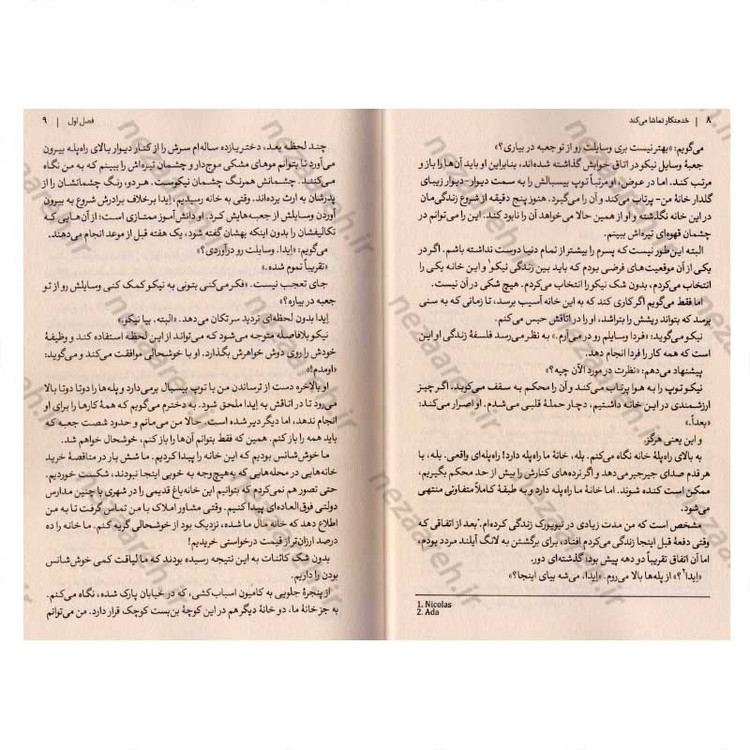 ۸ | خدمتکار تماشا می‌کند
می‌گویم: «بهتر نیست بری وسایلت رو از تو جعبه در بیاری؟»
جعبهٔ وسایل نیکو در اتاق خوابش گذاشته شده‌اند، بنابراین او باید آن‌ها را باز و
مرتب کند. اما در عوض، او مرتباً توپ بیسبالش را به سمت دیوار-دیوار زیبای
گلدار خانهٔ من- پرتاب می‌کند و آن را می‌گیرد. هنوز پنج دقیقه از شروع زندگی‌مان
در این خانه نگذشته و او از همین حالا می‌خواهد آن را نابود کند. این را می‌توانم در
چشمان قهوه‌ای تیره‌اش ببینم.
البته این‌طور نیست که پسرم را بیشتر از تمام دنیا دوست نداشته باشم. اگر در
یکی از آن موقعیت‌های فرضی بودم که باید بین زندگی نیکو۱ و این خانه یکی را
انتخاب می‌کردم، بدون شک نیکو را انتخاب می‌کردم. هیچ شکی در آن نیست.
اما فقط می‌گویم اگر کاری کند که به این خانه آسیب برسد، تا زمانی که به سنی
برسد که بتواند ریشش را بتراشد، او را در اتاقش حبس می‌کنم.
نیکو می‌گوید: «فردا وسایلم رو در می‌آرم.» به نظر می‌رسد فلسفهٔ زندگی او این
است که همه کار را فردا انجام دهد.
پیشنهاد می‌دهم: «نظرت در مورد الآن چیه؟»
نیکو توپ را به هوا پرتاب می‌کند و آن را محکم به سقف می‌کوبد. اگر چیز
ارزشمندی در این خانه داشتیم، دچار حملهٔ قلبی می‌شدم. او اصرار می‌کند:
«بعداً.»
و این یعنی هرگز.
به بالای راه‌پله خانه نگاه می‌کنم. بله، خانهٔ ما راه‌پله دارد! راه‌پله‌ای واقعی. بله، با
هر قدم صدای جیرجیر می‌دهد و اگر نرده‌های کنارش را بیش از حد محکم بگیریم،
ممکن است کنده شوند. اما خانهٔ ما راه‌پله دارد و به طبقهٔ کاملاً متفاوتی منتهی
می‌شود.
مشخص است که من مدت زیادی در نیویورک زندگی کرده‌ام. بعد از اتفاقی که
وقتی دفعهٔ قبل اینجا زندگی می‌کردم افتاد، برای برگشتن به لانگ آیلند مردد بودم.
اما آن اتفاق تقریباً دو دهه پیش بود؛ گذشته‌ای دور.
«اِیدا۲؟» از پله‌ها بالا می‌روم. «اِیدا، می‌شه بیای اینجا؟»
1. Nicolas
2. Ada
فصل اول | ۹
چند لحظه بعد، دختر یازده ساله‌ام سرش را از کنار دیوار بالای راه‌پله بیرون
می‌آورد تا بتوانم موهای مشکی موج‌دار و چشمان تیره‌اش را ببینم که به من نگاه
می‌کنند. چشمانش همرنگ چشمان نیکوست. هر دو، رنگ چشمانشان را از
پدرشان به ارث برده‌اند. وقتی به خانه رسیدیم، اِیدا برخلاف برادرش شروع به بیرون
آوردن وسایلش از جعبه‌هایش کرد. او دانش‌آموز ممتازی است؛ از آن‌هایی که
تکالیفشان را بدون اینکه بهشان گفته شود، یک هفته قبل از موعد انجام می‌دهند.
می‌گویم: «اِیدا، وسایلت رو درآوردی؟»
«تقریباً تموم شده.»
جای تعجب نیست. «فکر می‌کنی بتونی به نیکو کمک کنی وسایلش رو از تو
جعبه در بیاره؟»
اِیدا بدون لحظه‌ای تردید سر تکان می‌دهد. «البته. بیا نیکو.»
نیکو بلافاصله متوجه می‌شود که می‌تواند از این لحظه استفاده کند و وظیفهٔ
خودش را روی دوش خواهرش بگذارد. او با خوشحالی موافقت می‌کند و می‌گوید:
«اومدم!»
او بالاخره دست از ترساندن من با توپ بیسبال برمی‌دارد و پله‌ها را دوتا دوتا بالا
می‌رود تا در اتاقش به اِیدا ملحق شود. به دخترم می‌گویم که همهٔ کارها را برای او
انجام ندهد، اما دیگر دیر شده است. حالا من می‌مانم و حدود شصت جعبه که
باید همه را باز کنم. همین که فقط بتوانم آن‌ها را باز کنم، خوشحال خواهم شد.
ما خوش‌شانس بودیم که این خانه را پیدا کردیم. ما شش بار در مناقصهٔ خرید
خانه‌هایی در محله‌هایی که به‌هیچ‌وجه به خوبی اینجا نبودند، شکست خوردیم.
حتی تصور هم نمی‌کردم که بتوانیم این خانه‌باغ قدیمی را در شهری با چنین مدارس
دولتی فوق‌العاده‌ای پیدا کنیم. وقتی مشاور املاک با من تماس گرفت تا به من
اطلاع دهد که خانه مال ما شده، نزدیک بود از خوشحالی گریه کنم. ما خانه را ده
درصد ارزان‌تر از قیمت درخواستی خریدیم!
بدون شک کائنات به این نتیجه رسیده بودند که ما لیاقت کمی خوش‌شانس
بودن را داریم.
از پنجرهٔ جلویی به کامیون اسباب‌کشی، که در خیابان پارک شده، نگاه می‌کنم.
به جز خانهٔ ما، دو خانهٔ دیگر هم در این کوچهٔ بن‌بست کوچک قرار دارد. من می‌توانم
nezaareh.ir